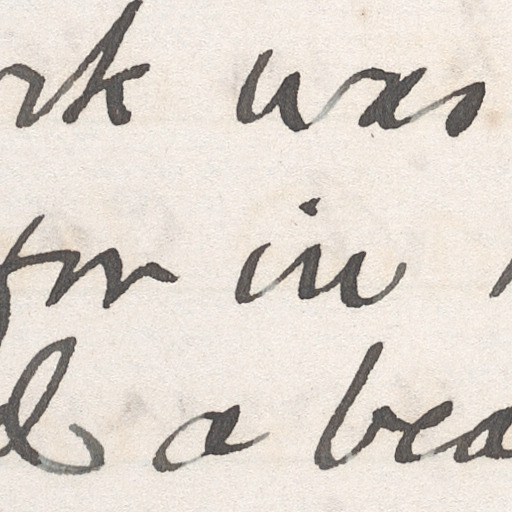 rk was
for in
d a bea